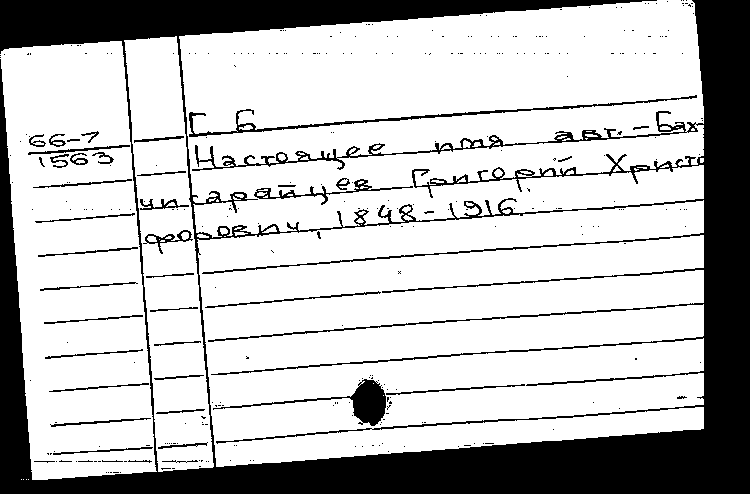 Г. Б
66-7
1563
Настоящее имя авт. - Бах-
чисарайцев Григорий Христо
форович, 1848-1916.